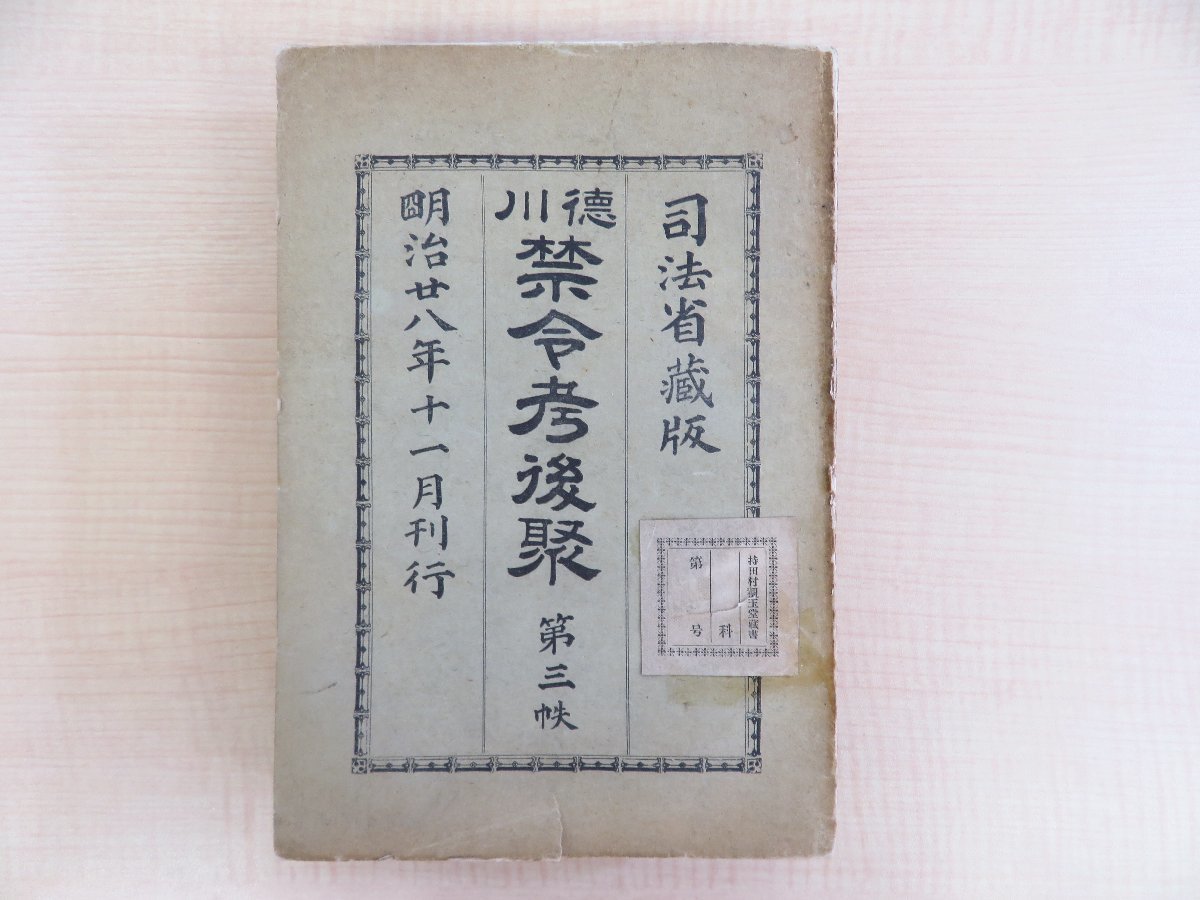 司法省藏版
德川
禁令考後聚
第三帙
明治廿八年十一月刊行
持田村觀玉堂藏書
科
第 号